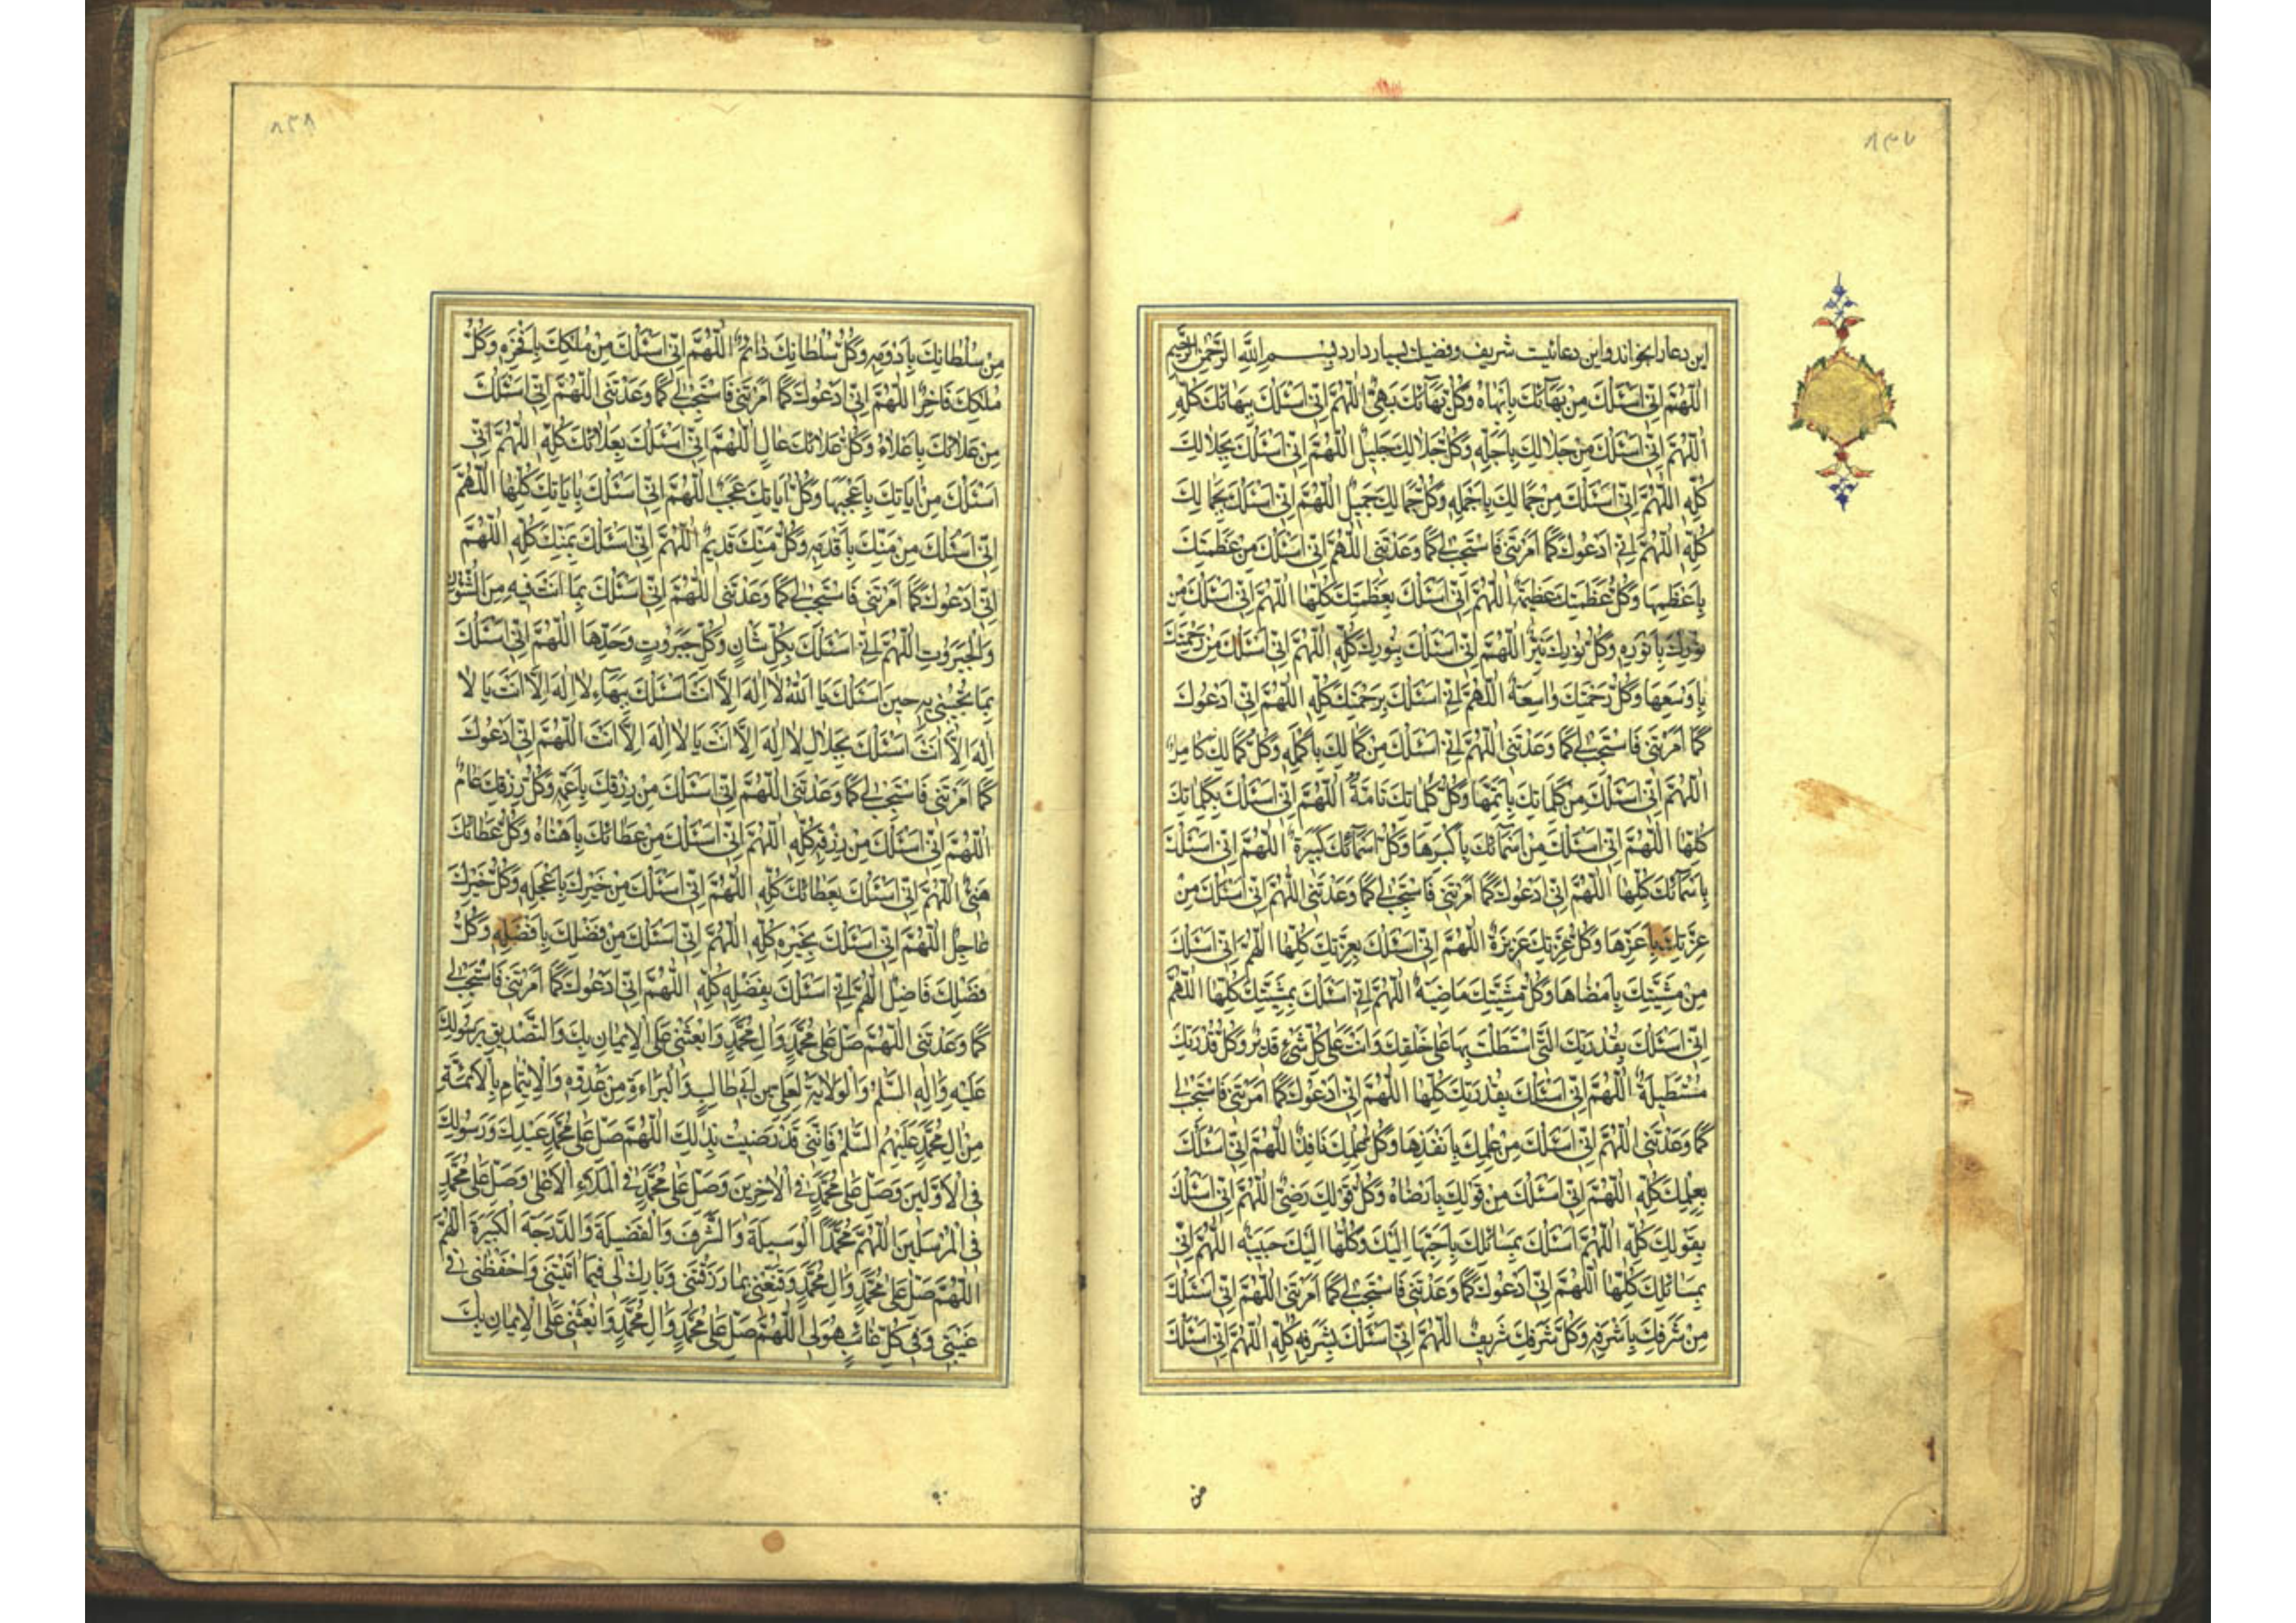 ٨٣٧
این دعا را بخواند و این دعائیست شریف و فضیلت بسیار دارد بسم الله الرحمن الرحیم
اَللّهُمَّ اِنّی اَسْئَلُكَ مِنْ بَهآئِكَ بِاَبْهاهُ وَكُلُّ بَهآئِكَ بَهِیٌّ اَللّهُمَّ اِنّی اَسْئَلُكَ بِبَهآئِكَ كُلِّهِ
اَللّهُمَّ اِنّی اَسْئَلُكَ مِنْ جَلالِكَ بِاَجَلِّهِ وَكُلُّ جَلالِكَ جَلیلٌ اَللّهُمَّ اِنّی اَسْئَلُكَ بِجَلالِكَ
كُلِّهِ اَللّهُمَّ اِنّی اَسْئَلُكَ مِنْ جَمالِكَ بِاَجْمَلِهِ وَكُلُّ جَمالِكَ جَمیلٌ اَللّهُمَّ اِنّی اَسْئَلُكَ بِجَمالِكَ
كُلِّهِ اَللّهُمَّ اِنّی اَدْعُوكَ كَما اَمَرْتَنی فَاسْتَجِبْ لی كَما وَعَدْتَنی اَللّهُمَّ اِنّی اَسْئَلُكَ مِنْ عَظَمَتِكَ
بِاَعْظَمِها وَكُلُّ عَظَمَتِكَ عَظیمَةٌ اَللّهُمَّ اِنّی اَسْئَلُكَ بِعَظَمَتِكَ كُلِّها اَللّهُمَّ اِنّی اَسْئَلُكَ مِنْ
نُورِكَ بِاَنْوَرِهِ وَكُلُّ نُورِكَ نَیِّرٌ اَللّهُمَّ اِنّی اَسْئَلُكَ بِنُورِكَ كُلِّهِ اَللّهُمَّ اِنّی اَسْئَلُكَ مِنْ رَحْمَتِكَ
بِاَوْسَعِها وَكُلُّ رَحْمَتِكَ واسِعَةٌ اَللّهُمَّ اِنّی اَسْئَلُكَ بِرَحْمَتِكَ كُلِّهِ اَللّهُمَّ اِنّی اَدْعُوكَ
كَما اَمَرْتَنی فَاسْتَجِبْ لی كَما وَعَدْتَنی اَللّهُمَّ اِنّی اَسْئَلُكَ مِنْ كَمالِكَ بِاَكْمَلِهِ وَكُلُّ كَمالِكَ كامِلٌ
اَللّهُمَّ اِنّی اَسْئَلُكَ مِنْ كَلِماتِكَ بِاَتَمِّها وَكُلُّ كَلِماتِكَ تامَّةٌ اَللّهُمَّ اِنّی اَسْئَلُكَ بِكَلِماتِكَ
كُلِّها اَللّهُمَّ اِنّی اَسْئَلُكَ مِنْ اَسْمآئِكَ بِاَكْبَرِها وَكُلُّ اَسْمآئِكَ كَبیرَةٌ اَللّهُمَّ اِنّی اَسْئَلُكَ
بِاَسْمآئِكَ كُلِّها اَللّهُمَّ اِنّی اَدْعُوكَ كَما اَمَرْتَنی فَاسْتَجِبْ لی كَما وَعَدْتَنی اَللّهُمَّ اِنّی اَسْئَلُكَ مِنْ
عِزَّتِكَ بِاَعَزِّها وَكُلُّ عِزَّتِكَ عَزیزَةٌ اَللّهُمَّ اِنّی اَسْئَلُكَ بِعِزَّتِكَ كُلِّها اَللّهُمَّ اِنّی اَسْئَلُكَ
مِنْ مَشِیَّتِكَ بِاَمْضاها وَكُلُّ مَشِیَّتِكَ ماضِیَةٌ اَللّهُمَّ اِنّی اَسْئَلُكَ بِمَشِیَّتِكَ كُلِّها اَللّهُمَّ
اِنّی اَسْئَلُكَ بِقُدْرَتِكَ الَّتی اسْتَطَلْتَ بِها عَلی خَلْقِكَ وَاَنْتَ عَلی كُلِّ شَیْءٍ قَدیرٌ وَكُلُّ قُدْرَتِكَ
مُسْتَطیلَةٌ اَللّهُمَّ اِنّی اَسْئَلُكَ بِقُدْرَتِكَ كُلِّها اَللّهُمَّ اِنّی اَدْعُوكَ كَما اَمَرْتَنی فَاسْتَجِبْ لی
كَما وَعَدْتَنی اَللّهُمَّ اِنّی اَسْئَلُكَ مِنْ عِلْمِكَ بِاَنْفَذِها وَكُلُّ عِلْمِكَ نافِذٌ اَللّهُمَّ اِنّی اَسْئَلُكَ
بِعِلْمِكَ كُلِّهِ اَللّهُمَّ اِنّی اَسْئَلُكَ مِنْ قَوْلِكَ بِاَرْضاهُ وَكُلُّ قَوْلِكَ رَضِیٌّ اَللّهُمَّ اِنّی اَسْئَلُكَ
بِقَوْلِكَ كُلِّهِ اَللّهُمَّ اَسْئَلُكَ بِمَسائِلِكَ بِاَحَبِّها اِلَیْكَ وَكُلُّها اِلَیْكَ حَبیبَةٌ اَللّهُمَّ اِنّی
بِمَسائِلِكَ كُلِّها اَللّهُمَّ اِنّی اَدْعُوكَ كَما وَعَدْتَنی فَاسْتَجِبْ لی كَما اَمَرْتَنی اَللّهُمَّ اِنّی اَسْئَلُكَ
مِنْ شَرَفِكَ بِاَشْرَفِهِ وَكُلُّ شَرَفِكَ شَریفٌ اَللّهُمَّ اِنّی اَسْئَلُكَ بِشَرَفِهِ كُلِّهِ اَللّهُمَّ اِنّی اَسْئَلُكَ
من
٨٣٨
مِنْ سُلْطانِكَ بِاَدْوَمِهِ وَكُلُّ سُلْطانِكَ دائِمٌ اَللّهُمَّ اِنّی اَسْئَلُكَ مِنْ مُلْكِكَ بِاَفْخَرِهِ وَكُلُّ
مُلْكِكَ فاخِرٌ اَللّهُمَّ اِنّی اَدْعُوكَ كَما اَمَرْتَنی فَاسْتَجِبْ لی كَما وَعَدْتَنی اَللّهُمَّ اِنّی اَسْئَلُكَ
مِنْ عَلائِكَ بِاَعْلاهُ وَكُلُّ عَلائِكَ عالٍ اَللّهُمَّ اِنّی اَسْئَلُكَ بِعَلائِكَ كُلِّهِ اَللّهُمَّ اِنّی
اَسْئَلُكَ مِنْ ایاتِكَ بِاَعْجَبِها وَكُلُّ ایاتِكَ عَجَبٌ اَللّهُمَّ اِنّی اَسْئَلُكَ بِایاتِكَ كُلِّها اَللّهُمَّ
اِنّی اَسْئَلُكَ مِنْ مَنِّكَ بِاَقْدَمِهِ وَكُلُّ مَنِّكَ قَدیمٌ اَللّهُمَّ اِنّی اَسْئَلُكَ بِمَنِّكَ كُلِّهِ اَللّهُمَّ
اِنّی اَدْعُوكَ كَما اَمَرْتَنی فَاسْتَجِبْ لی كَما وَعَدْتَنی اَللّهُمَّ اِنّی اَسْئَلُكَ بِما اَنْتَ فیهِ مِنَ الشُّئُونِ
وَالْجَبَرُوتِ اَللّهُمَّ اِنّی اَسْئَلُكَ بِكُلِّ شَأْنٍ وَكُلِّ جَبَرُوتٍ وَحْدَها اَللّهُمَّ اِنّی اَسْئَلُكَ
بِما تُجیبُنی بِهِ حینَ اَسْئَلُكَ یا اَللهُ لا اِلهَ اِلاّ اَنْتَ اَسْئَلُكَ بِبَهآءِ لا اِلهَ اِلاّ اَنْتَ یا لا
اِلهَ اِلاّ اَنْتَ اَسْئَلُكَ بِجَلالِ لا اِلهَ اِلاّ اَنْتَ یا لا اِلهَ اِلاّ اَنْتَ اَللّهُمَّ اِنّی اَدْعُوكَ
كَما اَمَرْتَنی فَاسْتَجِبْ لی كَما وَعَدْتَنی اَللّهُمَّ اِنّی اَسْئَلُكَ مِنْ رِزْقِكَ بِاَعَمِّهِ وَكُلُّ رِزْقِكَ عامٌ
اَللّهُمَّ اِنّی اَسْئَلُكَ مِنْ رِزْقِهِ كُلِّهِ اَللّهُمَّ اِنّی اَسْئَلُكَ مِنْ عَطائِكَ بِاَهْنَاهُ وَكُلُّ عَطائِكَ
هَنیءٌ اَللّهُمَّ اِنّی اَسْئَلُكَ بِعَطائِكَ كُلِّهِ اَللّهُمَّ اِنّی اَسْئَلُكَ مِنْ خَیْرِكَ بِاَعْجَلِهِ وَكُلُّ خَیْرِكَ
عاجِلٌ اَللّهُمَّ اِنّی اَسْئَلُكَ بِخَیْرِهِ كُلِّهِ اَللّهُمَّ اِنّی اَسْئَلُكَ مِنْ فَضْلِكَ بِاَفْضَلِهِ وَكُلُّ
فَضْلِكَ فاضِلٌ اَللّهُمَّ اِنّی اَسْئَلُكَ بِفَضْلِهِ كُلِّهِ اَللّهُمَّ اِنّی اَدْعُوكَ كَما اَمَرْتَنی فَاسْتَجِبْ لی
كَما وَعَدْتَنی اَللّهُمَّ صَلِّ عَلی مُحَمَّدٍ وَالِ مُحَمَّدٍ وَابْعَثْنی عَلَی الْایمانِ بِكَ وَالتَّصْدیقِ بِرَسُولِكَ
عَلَیْهِ وَالِهِ السَّلمُ وَالْوَلایَةِ لِعَلِیِّ بْنِ اَبی طالِبٍ وَالْبَرائَةِ مِنْ عَدُوِّهِ وَالْاِیتِمامِ بِالْاَئِمَّةِ
مِنْ الِ مُحَمَّدٍ عَلَیْهِمُ السَّلمُ فَاِنّی قَدْ رَضیتُ بِذلِكَ اَللّهُمَّ صَلِّ عَلی مُحَمَّدٍ عَبْدِكَ وَرَسُولِكَ
فِی الْاَوَّلینَ وَصَلِّ عَلی مُحَمَّدٍ فِی الْاخِرینَ وَصَلِّ عَلی مُحَمَّدٍ فِی الْمَلَاءِ الْاَعْلی وَصَلِّ عَلی مُحَمَّدٍ
فِی الْمُرْسَلینَ اَللّهُمَّ مُحَمَّداً الْوَسیلَةَ وَالشَّرَفَ وَالْفَضیلَةَ وَالدَّرَجَةَ الْكَبیرَةَ اَللّهُمَّ
اَللّهُمَّ صَلِّ عَلی مُحَمَّدٍ وَالِ مُحَمَّدٍ وَقَنِّعْنی بِما رَزَقْتَنی وَبارِكْ لی فیما اتَیْتَنی وَاحْفَظْنی فی
غَیْبَتی وَفی كُلِّ غائِبٍ هُوَ لی اَللّهُمَّ صَلِّ عَلی مُحَمَّدٍ وَالِ مُحَمَّدٍ وَابْعَثْنی عَلَی الْایمانِ بِكَ